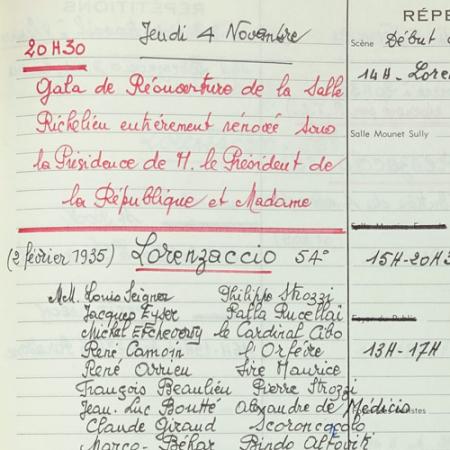 Jeudi 4 Novembre
20H30
Gala de Réouverture de la Salle
Richelieu entièrement rénovée sous
la Présidence de M. le Président de
la République et Madame
(2 février 1935) Lorenzaccio 54e
MM. Louis Seigner Philippe Strozzi
Jacques Eyser Palla Rucellai
Michel Etcheverry le Cardinal Cibo
René Camoin l'Orfèvre
René Arrieu Sire Maurice
François Beaulieu Pierre Strozzi
Jean-Luc Boutté Alexandre de Médicis
Claude Giraud Scoronconcolo
Marco-Béhar Bindo Altoviti
RÉPE
Scène Début
14H - Loren
Salle Mounet Sully
15H-20H3
Foyer du Public
13H-17H